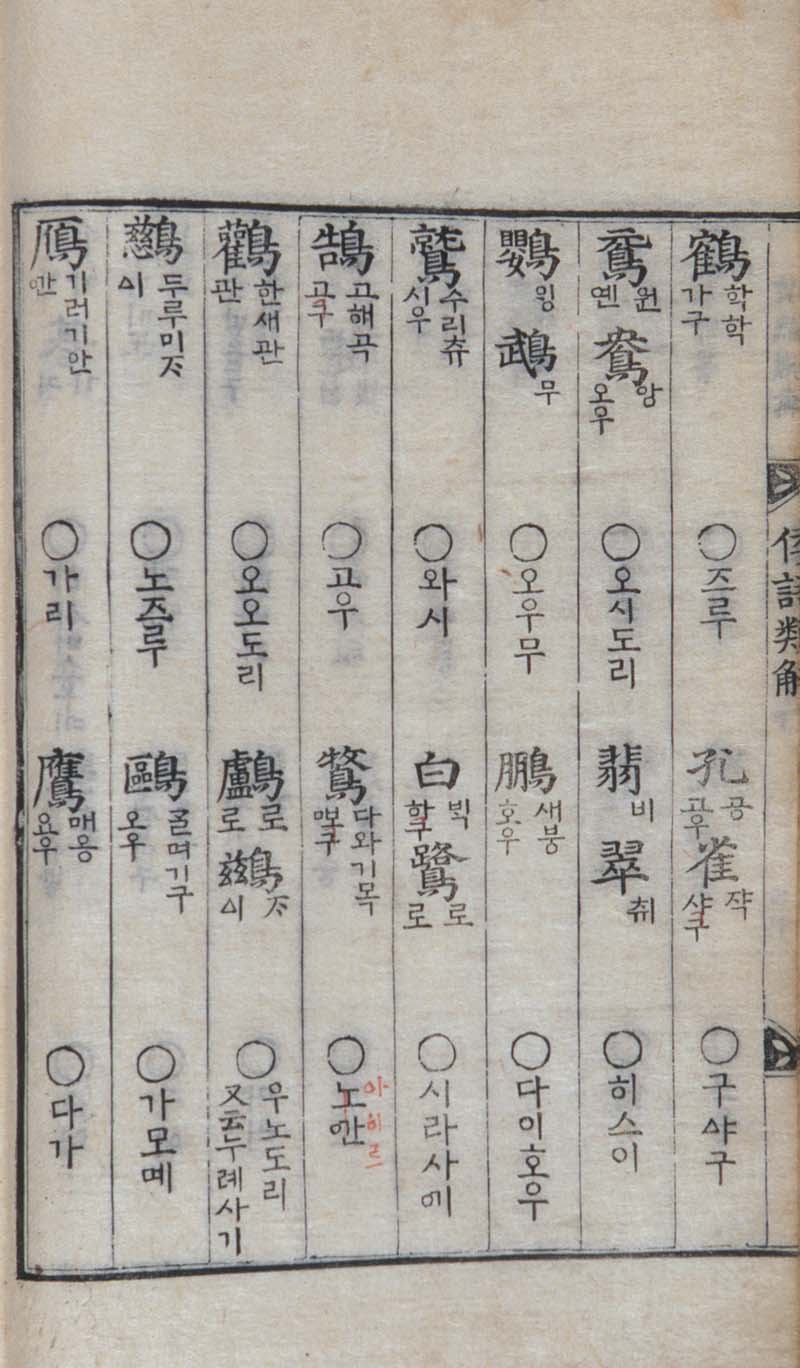 倭語類解
鶴 학학 가구 ○즈루 孔 공 고우 雀 쟉 샤구 ○구ᅀᅣ구
鴛 원 옌 鴦 앙 오우 ○오시도리 翡 비 翠 취 ○히스이
鸚 鵡 무 ○오우무 鵬 새붕 호우 ○다이호우
鷲 수리츄 시우 ○와시 白 ᄇᆡᆨ 하구 鷺 로 로 ○시라사ᅁᅵ
鵠 고해곡 고구 ○고우 鶩 다와기목 ○노ᅁᅡᆫ 아히르
鸛 한새관 관 ○오오도리 鸕 로 로 鶿 ᄌᆞ ᅀᅵ ○우노도리 又云두례사기
鷀 두루미ᄌᆞ ᅀᅵ ○노즈루 鷗 ᄀᆞᆯ며기구 오우 ○가모메
鴈 기러기안 ᅁᅡᆫ ○가리 鷹 매응 요우 ○다가